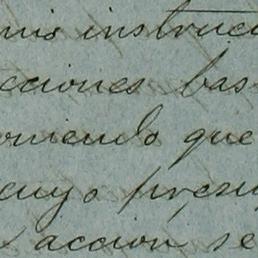 mis instruc
cciones bas-
oniendo que
cuyo presu
acción se